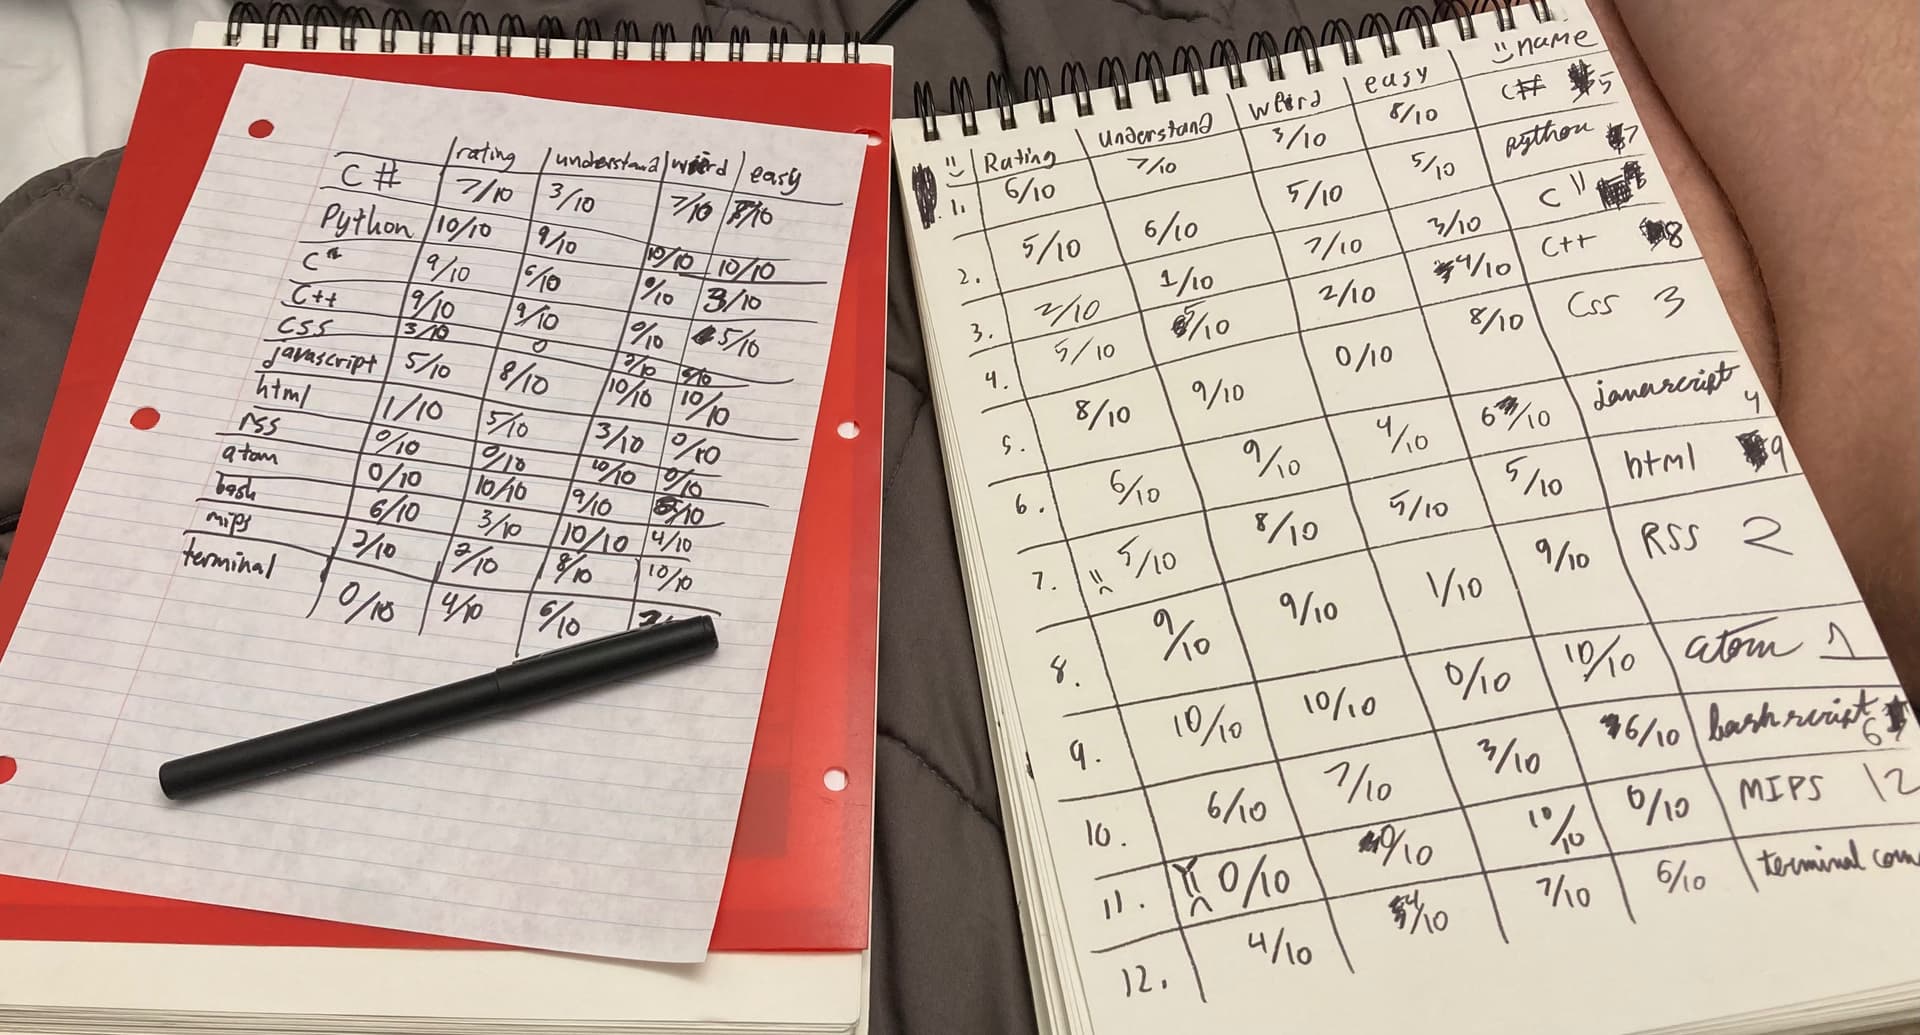 rating understand weird easy
C# 7/10 3/10 7/10 /10
Python 10/10 9/10 10/10 10/10
C 9/10 6/10 0/10 3/10
C++ 9/10 9/10 0/10 5/10
CSS 3/10 0 2/10 /10
javascript 5/10 8/10 10/10 10/10
html 1/10 5/10 3/10 0/10
rss 0/10 0/10 10/10 0/10
atom 0/10 10/10 9/10 /10
bash 6/10 3/10 10/10 4/10
mips 2/10 2/10 8/10 10/10
terminal 0/10 4/10 6/10
Rating understand weird easy name
1. 6/10 7/10 3/10 8/10 C# 5
2. 5/10 6/10 5/10 5/10 python 7
3. 2/10 1/10 7/10 3/10 C
4. 5/10 5/10 2/10 4/10 C++ 8
5. 8/10 9/10 0/10 8/10 Css 3
6. 6/10 9/10 4/10 6/10 javascript 4
7. 5/10 8/10 5/10 5/10 html 9
8. 9/10 9/10 1/10 9/10 RSS 2
9. 10/10 10/10 0/10 10/10 atom 1
10. 6/10 7/10 3/10 6/10 bash script 6
11. 0/10 0/10 10/10 0/10 MIPS 12
12. 4/10 4/10 7/10 6/10 terminal com